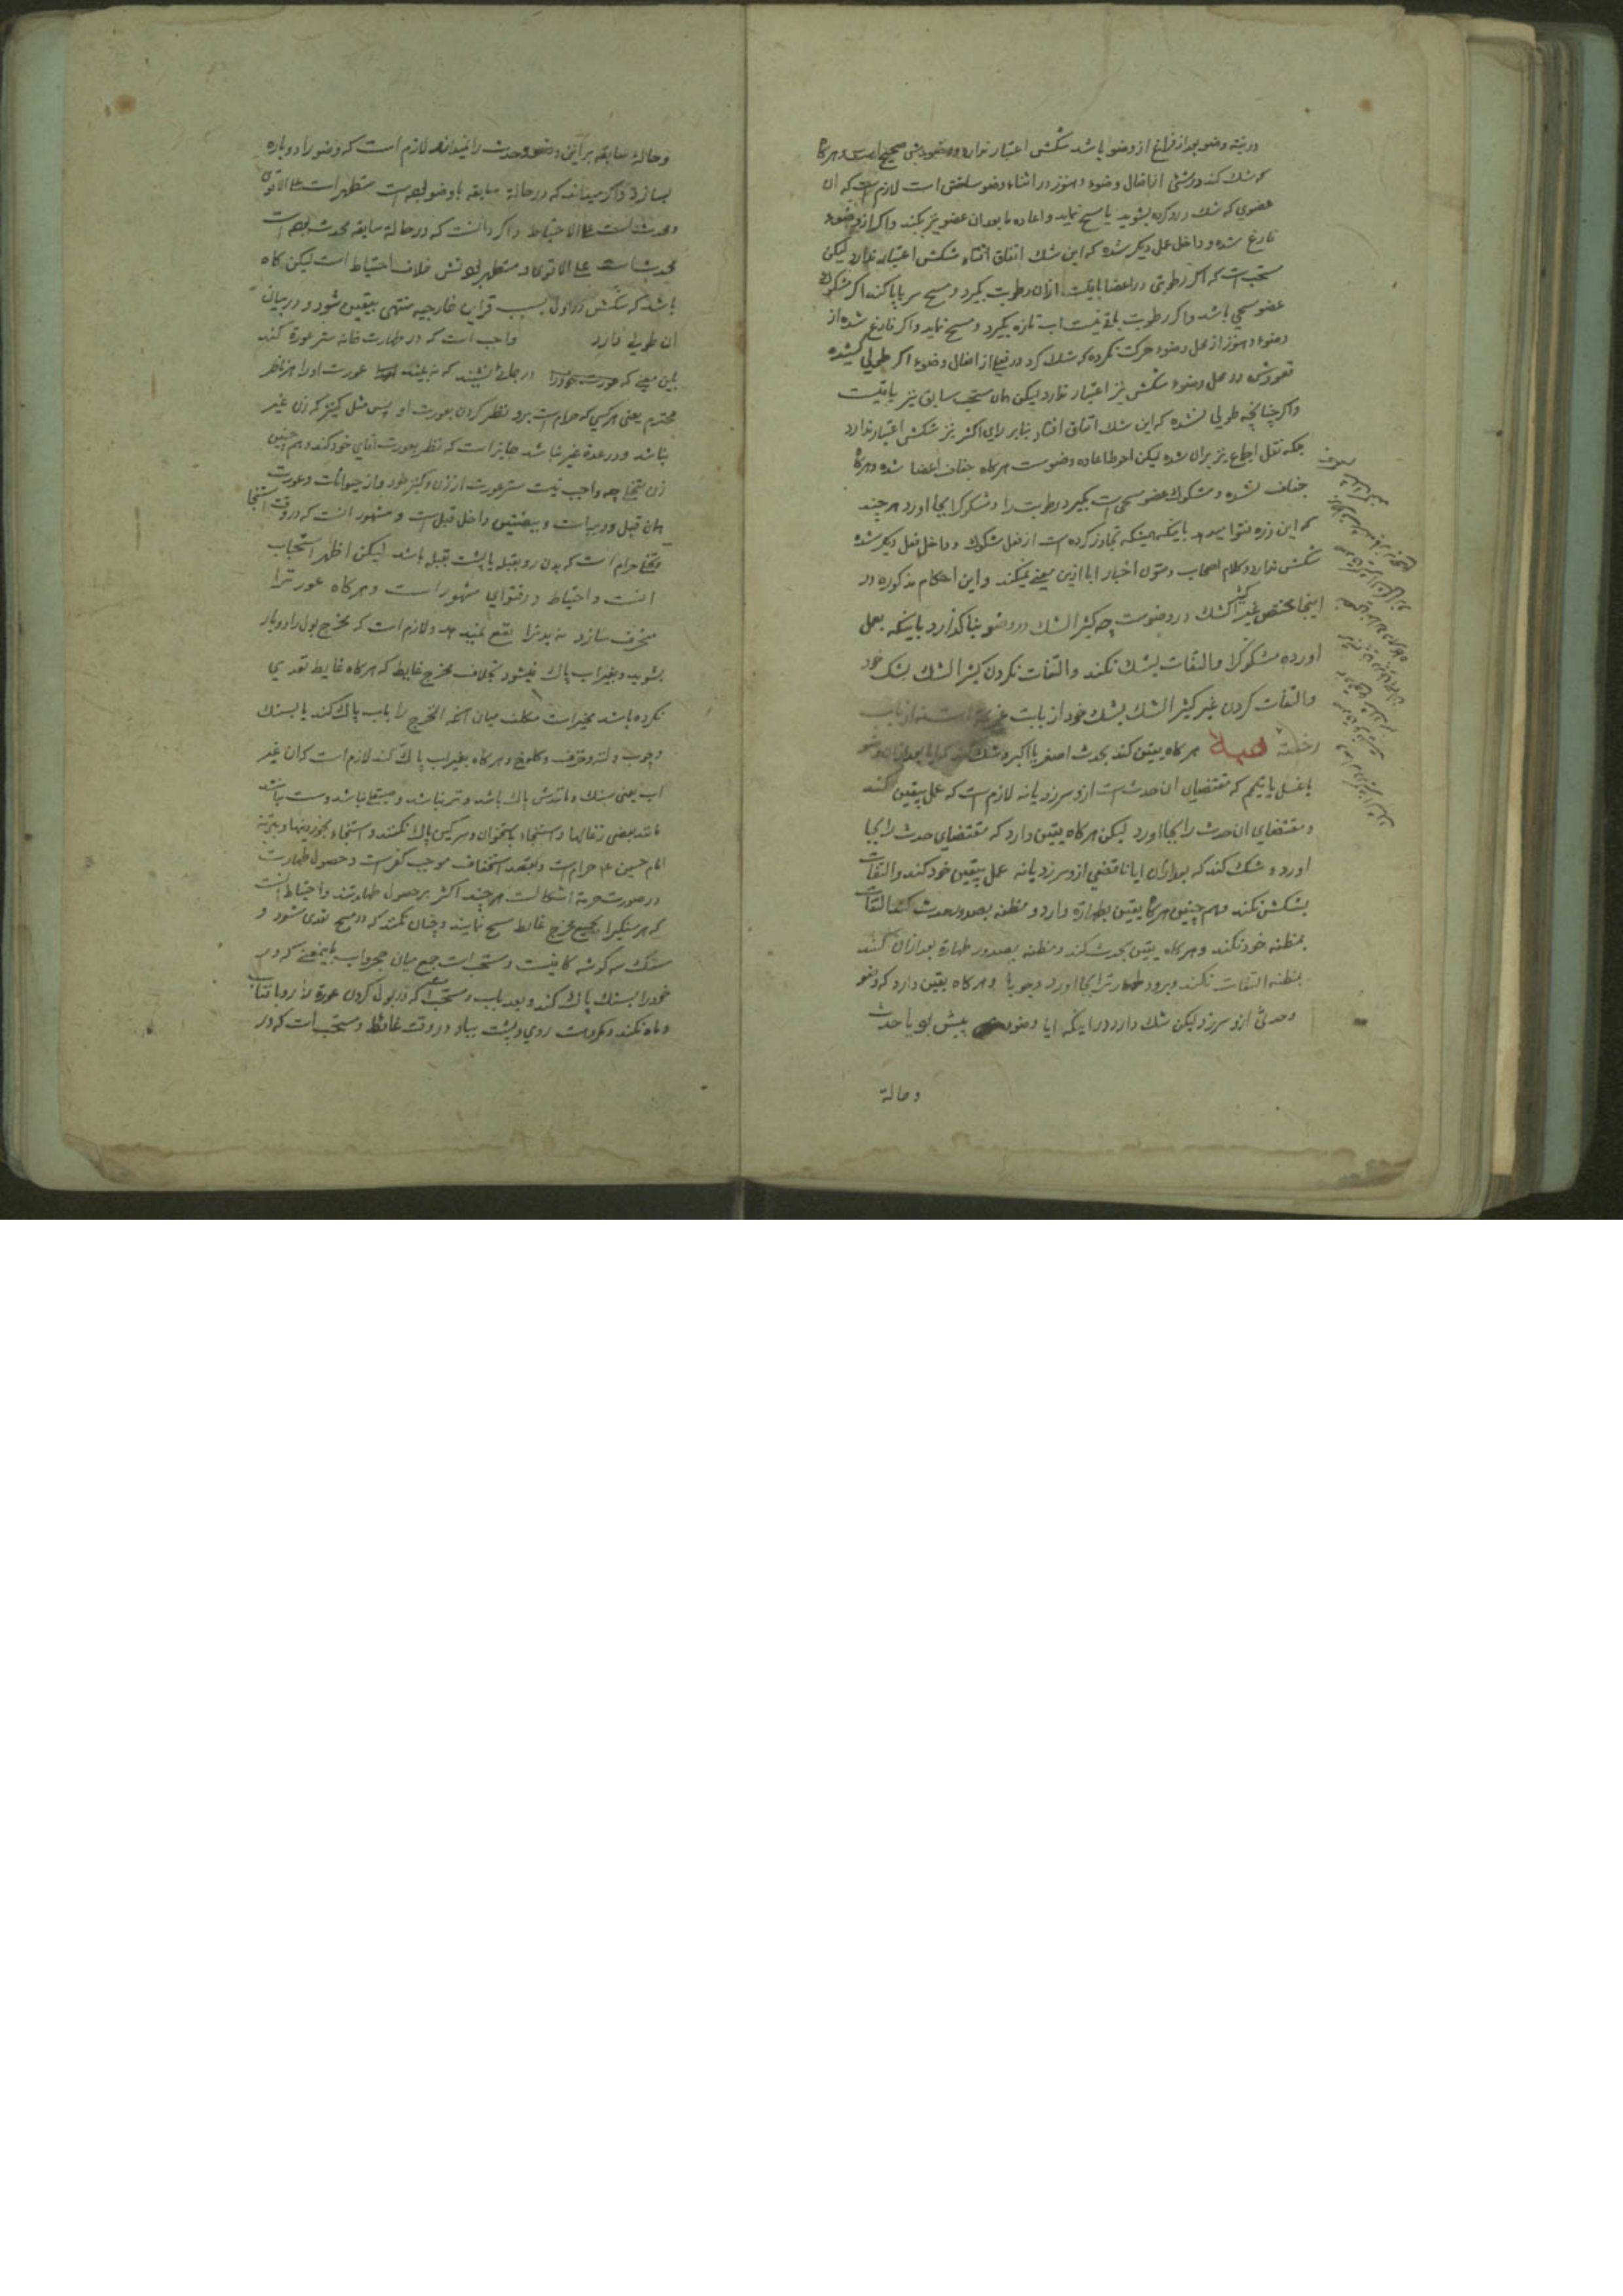 در نیته وضو بعد از فراغ از وضو باشد شکش اعتبار ندارد و وضویش صحیح است و هرکا
که شك کند در شئ از افعال وضوء و هنوز در اثناء وضو ساختن است لازم است که ان
عضوي که شك در او کرده بشوید یا مسح نماید و اعاده ما بعد ان عضو نیز بکند و اکر از وضوء
فارغ شده و داخل عمل دیکر شده که این شك اتفاق افتاد شکش اعتبار ندارد لیکن
مستحب است که اکر رطوبتی در اعضا باقیست ازان رطوبت بکیرد و مسح سر یا پا کند اکر مشکوك
عضو مسحي باشد و اکر رطوبت باقی نیست اب تازه بکیرد و مسح نماید و اکر فارغ شده از
وضوء و هنوز از محل وضوء حرکت نکرده که شك کرد در فعلی از افعال وضوء اکر طولی کشیده
قعودش در محل وضوء شکش نیز اعتبار ندارد لیکن همان مستحب سابق نیز باقیست
و اکر چنانچه طولی نشده که این شك اتفاق افتاد بنابر رای اکثر نیز شکش اعتبار ندارد
بلکه نقل اجماع نیز بران شده لیکن احوط اعاده وضوست هرکاه جفاف اعضا شده و هرکا
جفاف نشده و مشکوك عضو مسحی است بکیرد رطوبت را و مشکوکرا بجا اورد هر چند
باینکه همینکه تجاوز کرده است از فعل مشکوك و داخل فعل دیکر شده
شکش ندارد و کلام اصحاب و متون اخبار ابا ازین معنی میکند و این احکام مذکوره در
اینجا مختص غیر کثیر الشك در وضوست چه کثیر الشك در وضو بنا کذارد باینکه بعمل
اورده مشکوکرا و التفات بشك نکند و التفات نکردن کثیر الشك بشك خود
و التفات کردن غیر کثیر الشك بشك خود از بابت عزیمة است نه از باب
رخصة هرکاه یقین کند بحدث اصغر یا اکبر و شك کند که ایا بعد ازان وضو
یا غسل یا تیمم که مقتضیان ان حدث است ازو سر زد یا نه لازم است که عمل بیقین کند
و مقتضای ان حدث را بجا اورد لیکن هرکاه یقین دارد که مقتضای حدث را بجا
اورد و شك کند که بعد ازان ایا ناقضي ازو سر زد یا نه عمل بیقین خود کند و التفات
بشکش نکند و هم چنین هرکا یقین بطهارة دارد و مظنه بصدور حدث کند التفات
بمظنه خود نکند و هرکاه یقین بحدث کند و مظنه بصدور طهارة بعد ازان کند
بمظنه التفات نکند و برود طهارترا بجا اورد وجوبا و هرکاه یقین دارد که وضو
و حدثی ازو سر زد لیکن شك دارد در اینکه ایا وضو پیش بود یا حدث
و حالة
و حالة سابقه بر این وضو و حدث را نمیداند لازم است که وضو را دوباره
بسازد و اکر میداند که در حالة سابقه با وضو بوده است متطهر است علی الاقوی
و محدث است علی الاحتیاط و اکر دانست که در حالة سابقه محدث بوده است
محدث است علی الاقوی و متطهر بودنش خلاف احتیاط است لیکن کاه
باشد که شکش در اول بسبب قراین خارجیه منتهی بیقین شود و در بیان
ان طولی دارد واجب است که در طهارت خانه ستر عورة کند
باین معنی که در جائی بنشیند که نه بیند عورت او را هر ناظر
محترم یعنی هر کسی که حرام است برو نظر کردن بعورت او پس مثل کنیز که زن غیر
نباشد و در عدة غیر نباشد جایز است که نظر بعورت اقای خود کند و هم چنین
زن متخلی چه واجب نیست ستر عورت از زن و کنیز خود و از حیوانات و عورت
همان قبل و دبر است و بیضتین داخل قبل است و مشهور انست که در وقت استنجا
و تخلی حرام است که بدن رو بقبله یا پشت بقبله باشد لیکن اظهر استحباب
انست و احتیاط در فتوای مشهور است و هرکاه عورترا
منحرف سازد نه بدنرا نفع نمیدهد و لازم است که مخرج بول را دوبار
بشوید و بغیر اب پاك نمیشود بخلاف مخرج غایط که هرکاه غایط تعدي
نکرده باشد مخیر است مکلف میان انکه المخرج را باب پاك کند یا بسنك
و چوب و لته و خزف و کلوخ و هرکاه بغیر اب پاك کند لازم است که ان غیر
اب یعنی سنك و مانندش پاك باشد و تر نباشد و صیقلی نباشد و سست نباشد
مانند بعضی زغالها و استنجاء باستخوان و سرکین پاك نکنند و استنجاء بخوردنیها و بتربة
امام حسین ع حرام است و بقصد استخفاف موجب کفر است و حصول طهارت
در صورت حرمة اشکالست هر چند اکثر بر حصول طهارتند و احتیاط انست
که هر سنکیرا بجمیع مخرج غائط مسح نمایند و چنان نکنند که در مسح تعدی شود و
سنك سه کوشه کافیست و مستحب است جمع میان حجر و اب باینمعنی که دبر
خود را بسنك پاك کند و بعد باب و مستحب است که در بول کردن عورة را رو بافتاب
و ماه نکند و مکروهست روی و پشت بباد در وقت غائط و مستحب است که در